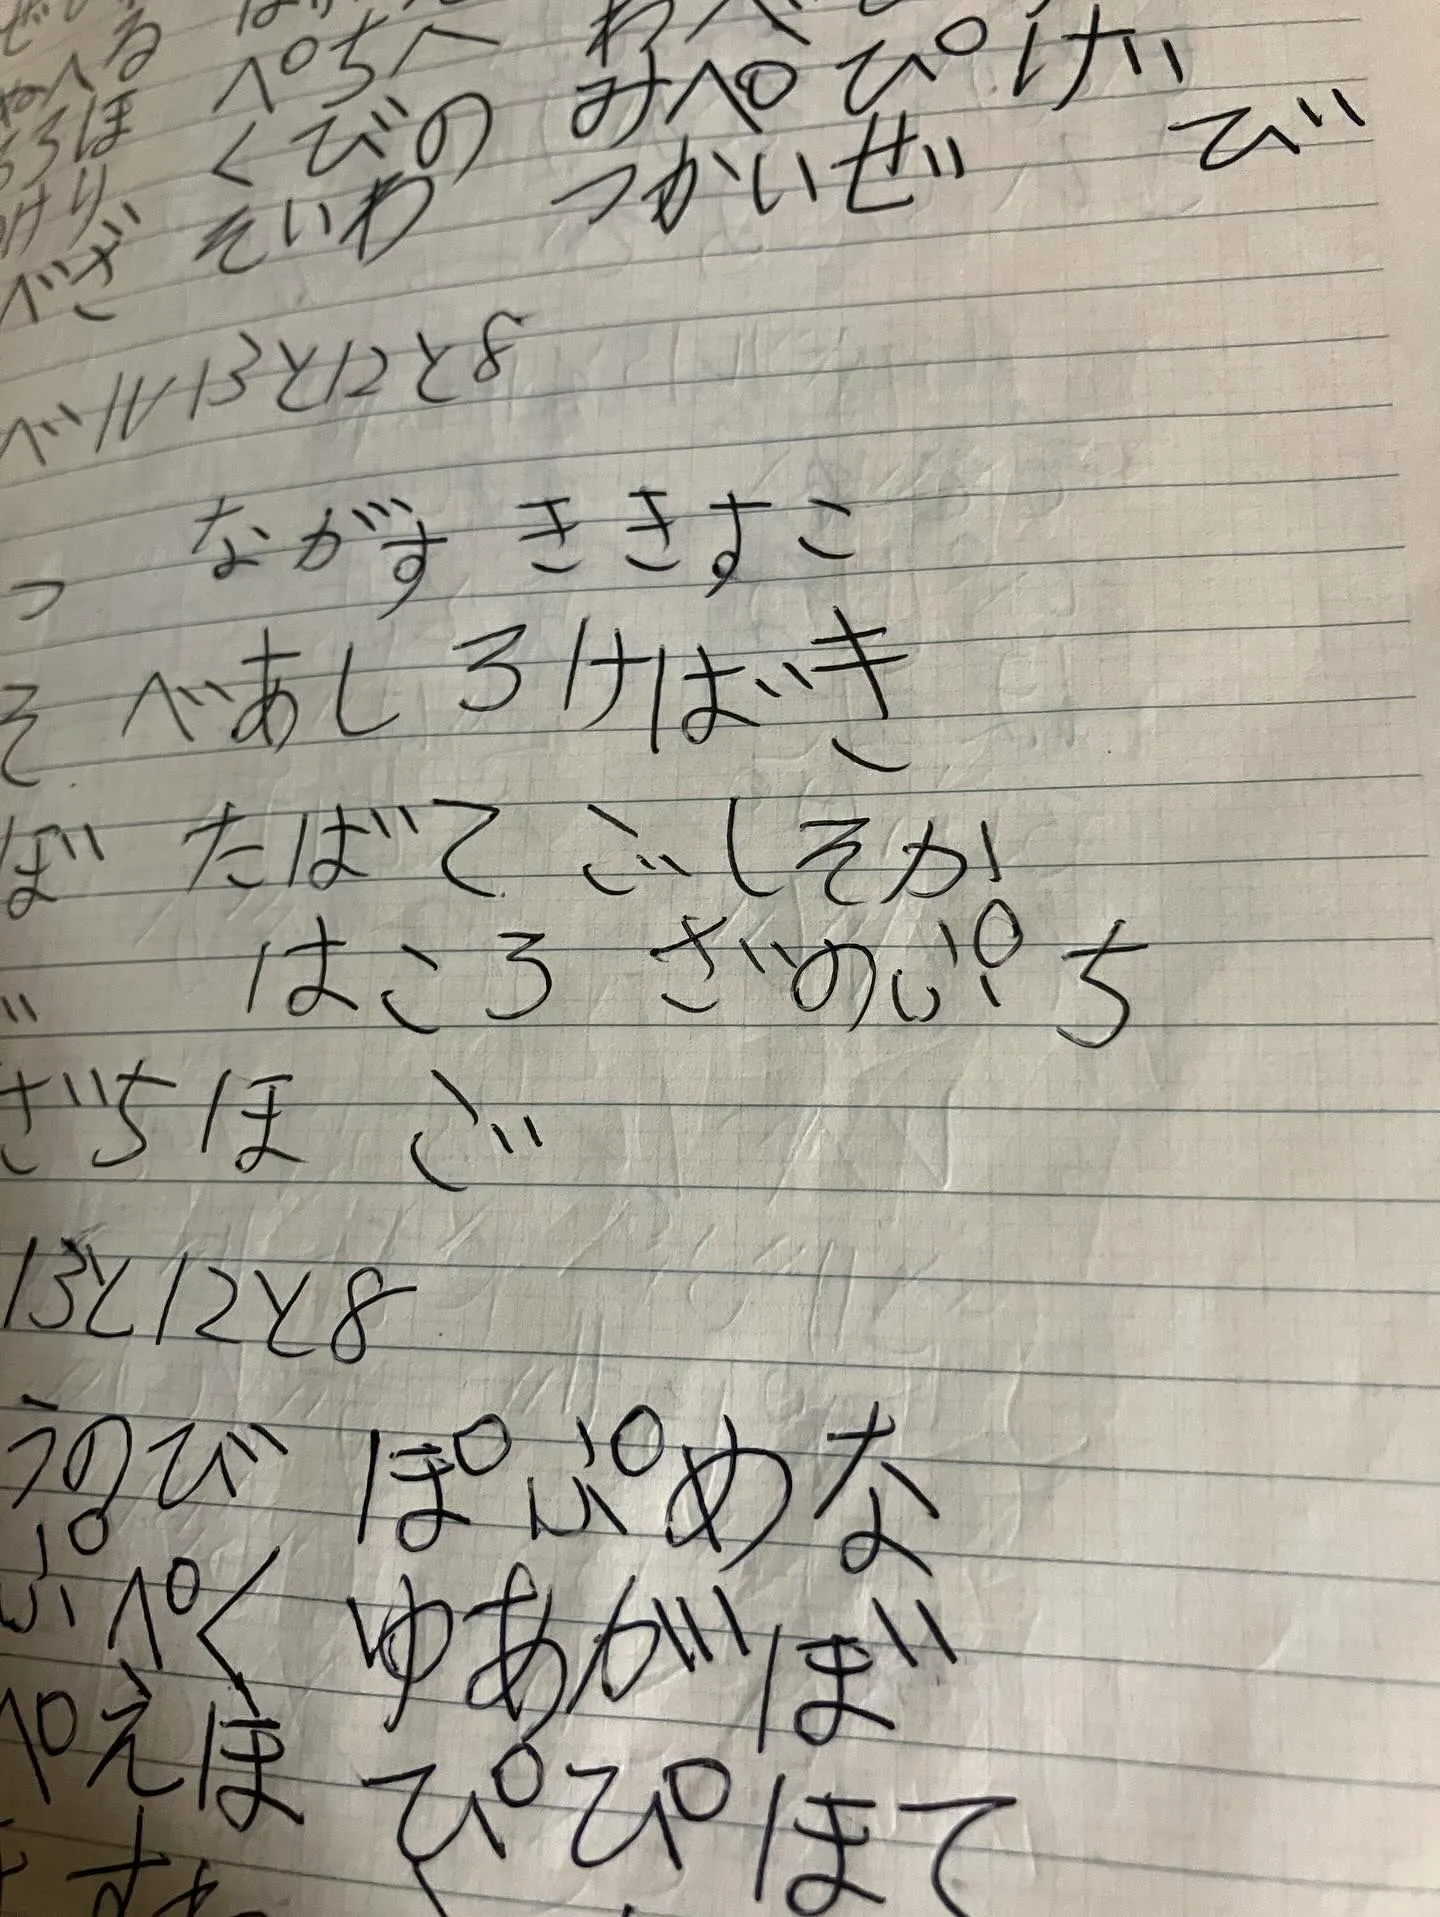 やへる ぺちへ わべ
ろろほ くびの みぺぴげ
けり そいわ つかいぜ び
べざ
ベル13と12と8
っ ながす ききすこ
そ べあし ろけばき
ぼ たばて ごしそか
はころ ざのぷち
ざちほ ご
13と12と8
うのび ぽぷめな
ぷぺく ゆあがぼ
ぺえほ ぴぴほて